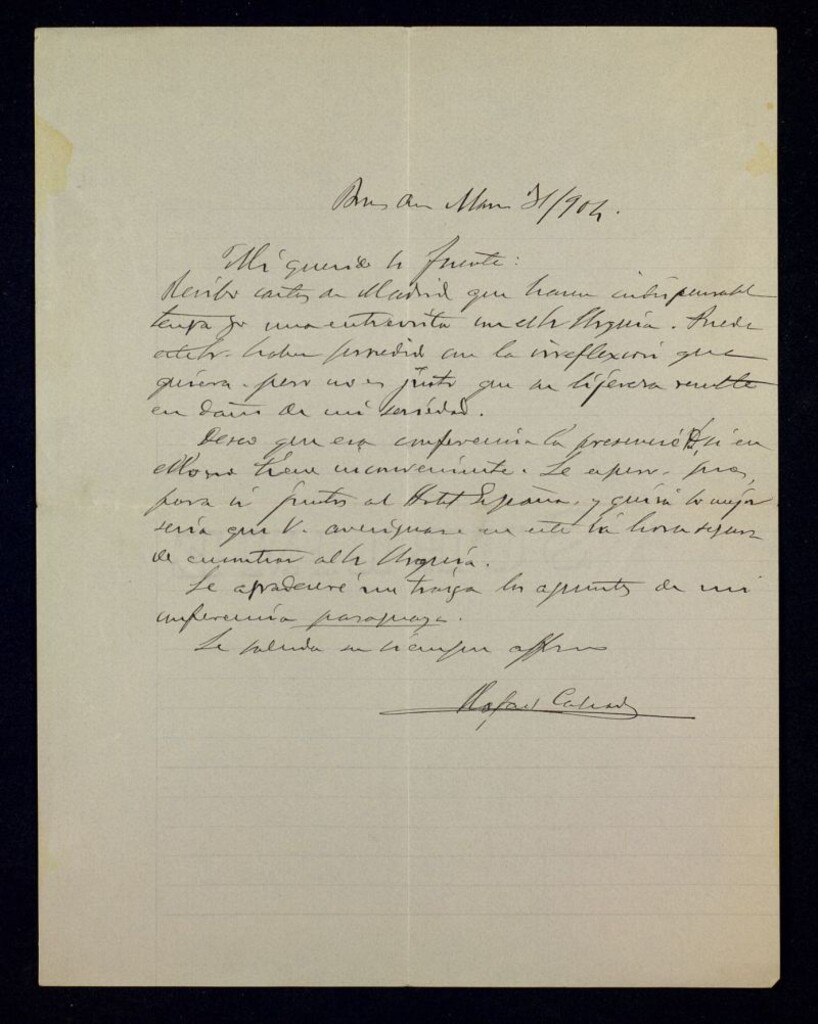 Bns Aires Marzo 31/904.
Mi querido La fuente:
Recibo cartas de Madrid que hacen indispensable
tenga yo una entrevista con el Sr Urquía. Puede
este Sr. haber procedido con la irreflexión que
quiera, pero no es justo que su ligereza resulte
en daño de mi seriedad.
Deseo que esa conferencia la presencie V, si en
ello no tiene inconveniente. Le espero, pues,
para ir juntos al Hotel España, y quizá lo mejor
sería que V. averiguase en este la hora segura
de encontrar al Sr Urquía.
Le agradeceré me traiga los apuntes de mi
conferencia paraguaya.
Le saluda su siempre affmo
Rafael Calzada